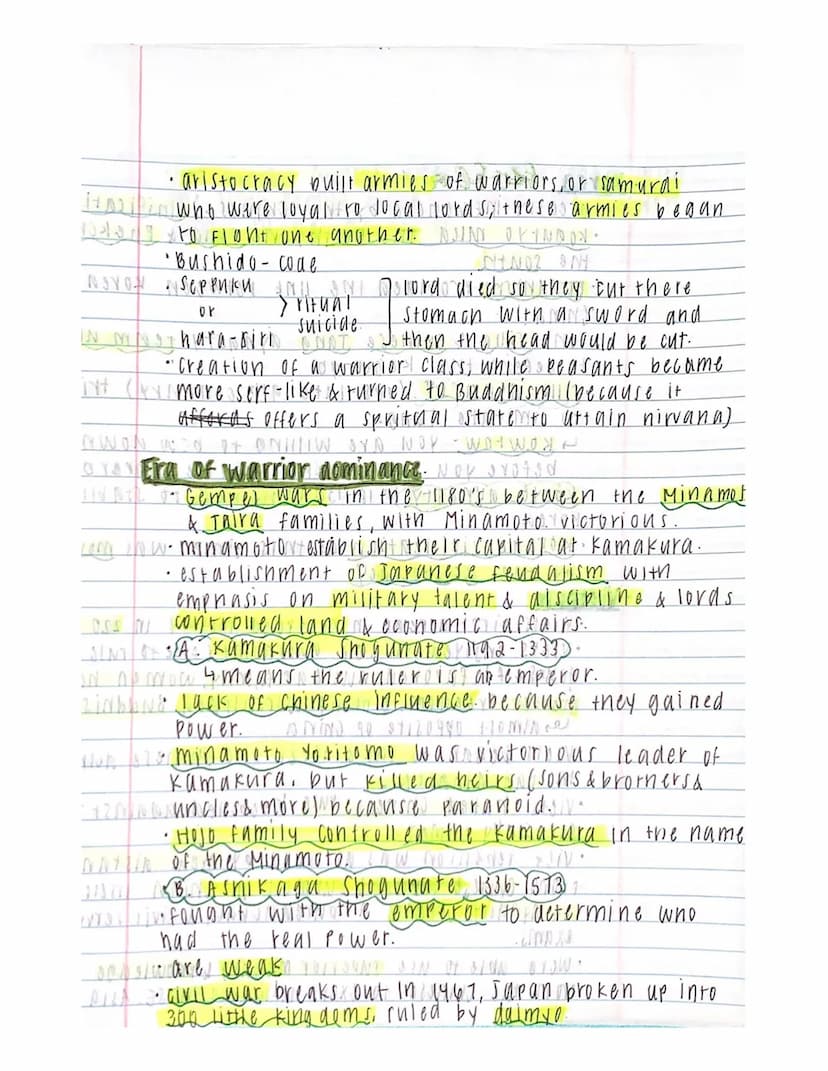 · aristocracy built armies of warriors, or samurai
who were loyal to local lords; these armies began
to fight one another.
· Bushido - code
· Seppuku
or
hara-kiri
> ritual
suicide
lord died so they cut there
stomach with a sword and
then the head would be cut.
· creation of a warrior class, while peasants became
more serf-like & turned to Buddhism (because it
affords offers a spritual state to attain nirvana)
Era of warrior dominance.
· Gempei wars in the 1180's between the Minamot
& Taira families, with Minamoto victorious.
· minamoto establish their capital at Kamakura.
· establishment of Japanese feudalism with
emphasis on military talent & discipline & lords
controlled land & economic affairs.
· A. Kamakura Shogunate 1192-1333
↳ means the ruler is an emperor.
· lack of chinese influence because they gained
power.
· minamoto Yoritomo was victorious leader of
Kamakura, but killed heirs (sons & brothers &
uncles & more) because paranoid.
· Hojo family controlled the Kamakura in the name
of the Minamoto.
· B. Ashikaga Shogunate 1336-1573
· fought with the emperor to determine who
had the real power.
· are weak
· civil war breaks out in 1467, Japan broken up into
300 little kingdoms, ruled by daimyo